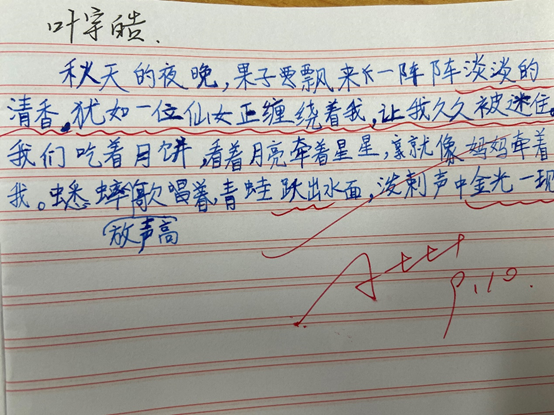 叶宇皓.
秋天的夜晚,果子要飘来下一阵阵淡淡的
清香。犹如一位仙女正缠绕着我,让我久久被迷住。
我们吃着月饼,看着月亮牵着星星,就像妈妈牵着
我。蟋蟀歌唱着,青蛙跃出水面,泼剌声中金光一现
放声高
A+++
9.10.